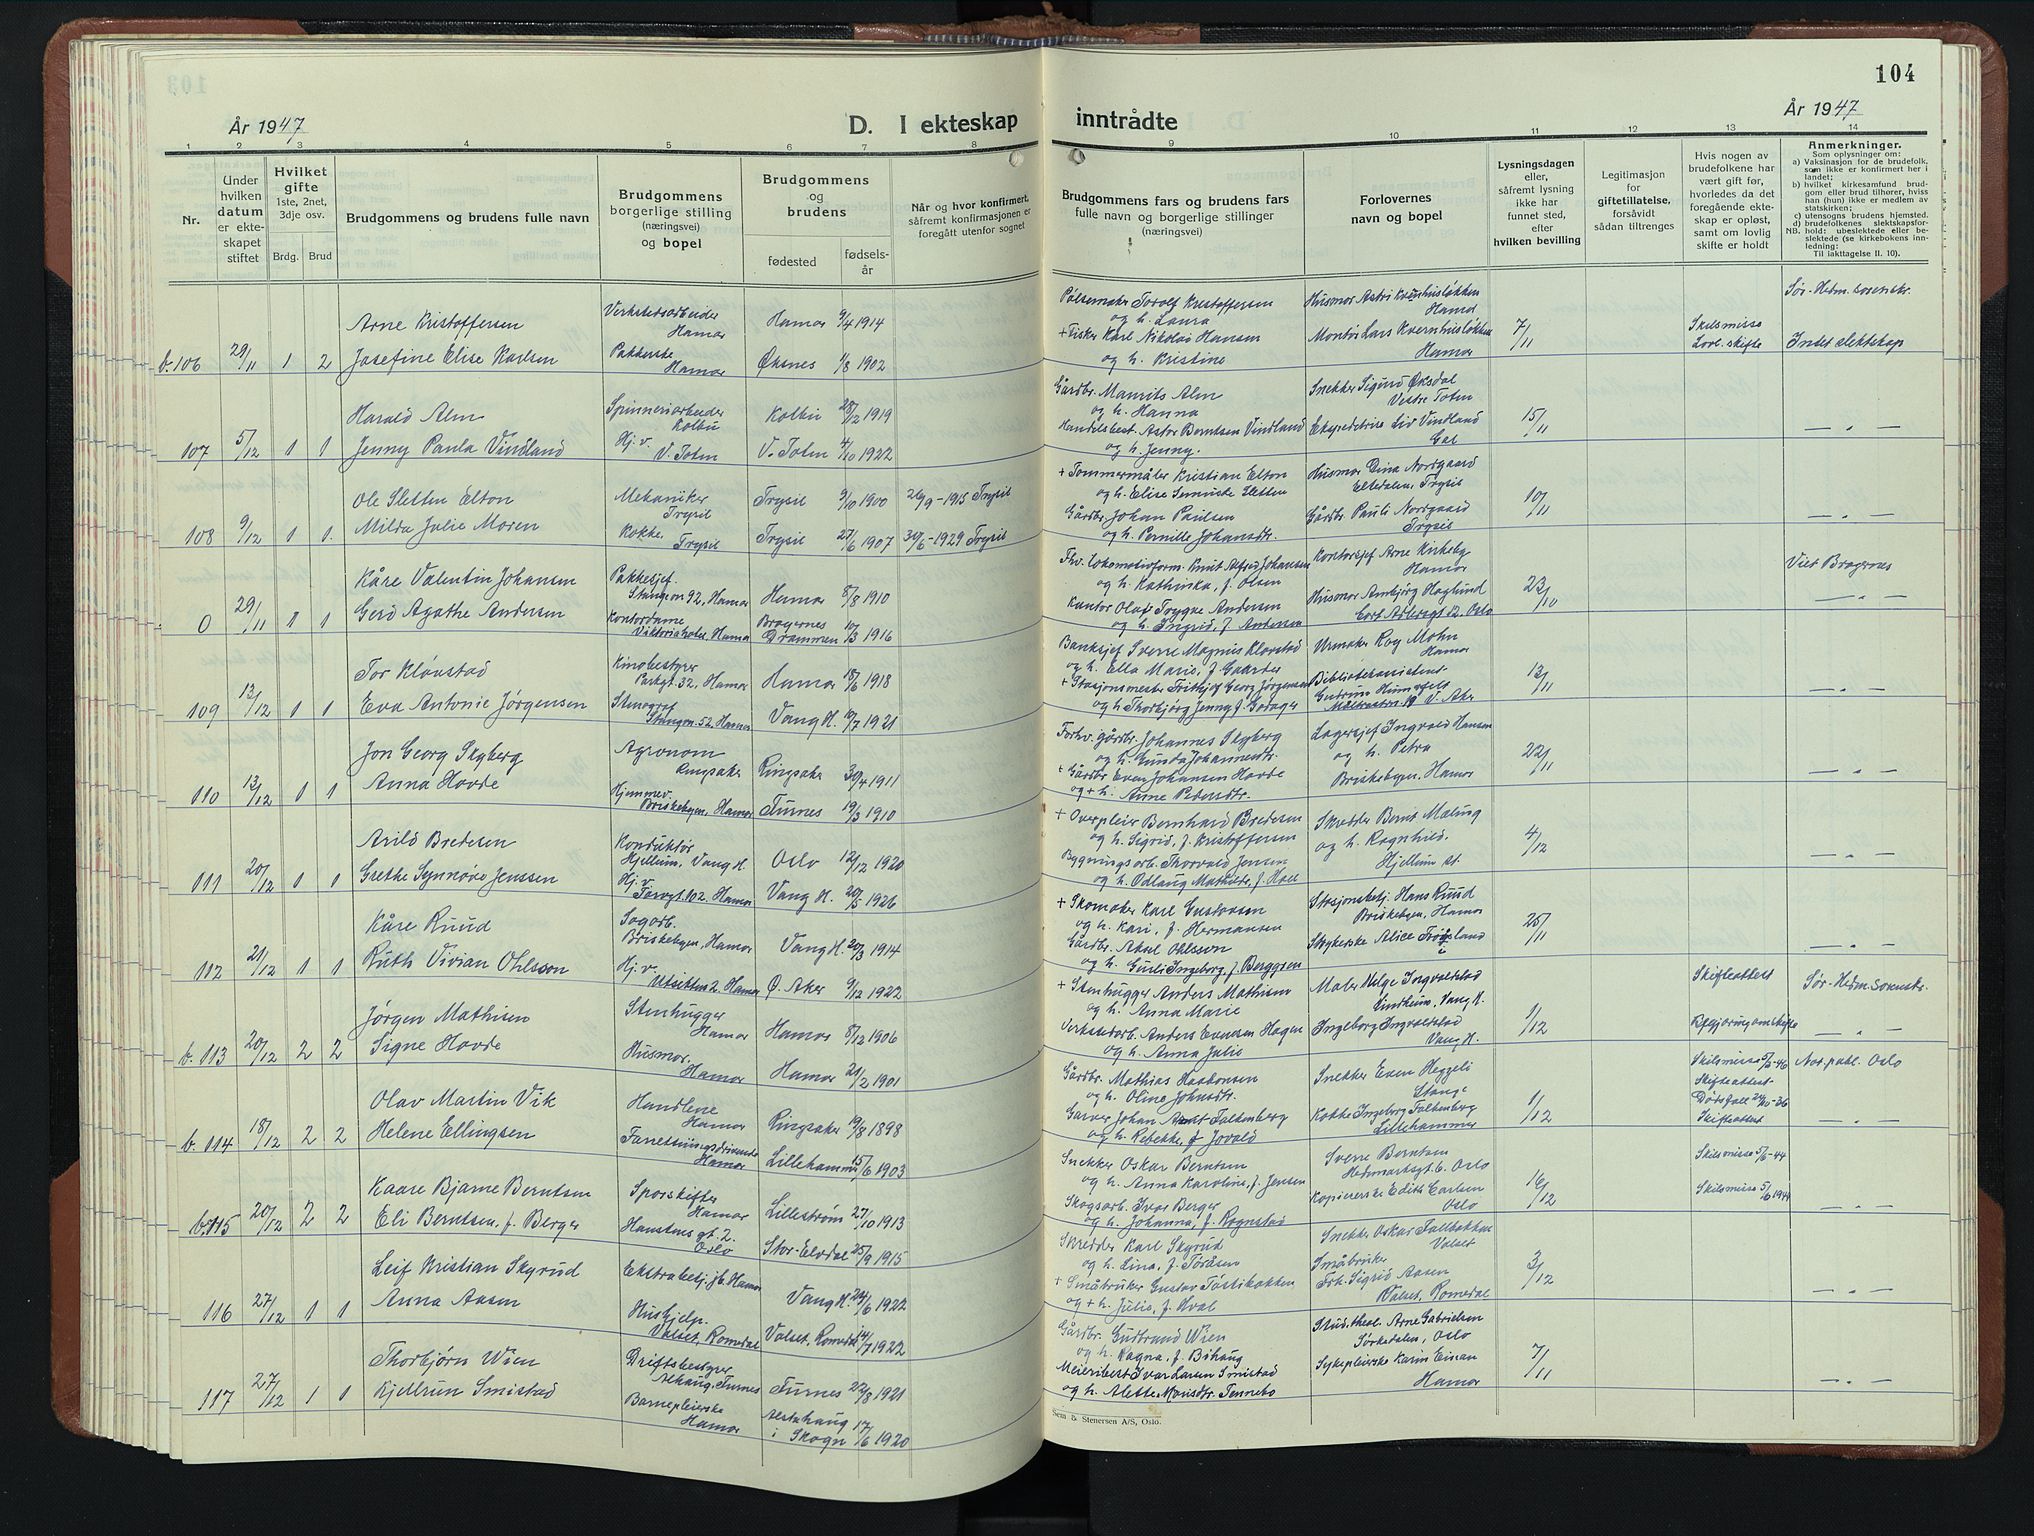 104
År 1947
D. I ekteskap
inntrådte
År 1947
1 2 3 4 5 6 7 8 9 10 11 12 13 14
Nr.
Under hvilken datum er ekteskapet stiftet
Hvilket gifte 1ste, 2net, 3dje osv.
Brdg. Brud
Brudgommens og brudens fulle navn
Brudgommens borgerlige stilling (næringsvei) og bopel
Brudgommens og brudens
fødested
fødsels-år
Når og hvor konfirmert, såfremt konfirmasjonen er foregått utenfor sognet
Brudgommens fars og brudens fars fulle navn og borgerlige stillinger (næringsvei)
Forlovernes navn og bopel
Lysningsdagen eller, såfremt lysning ikke har funnet sted, efter hvilken bevilling
Legitimasjon for giftetillatelse, forsåvidt sådan tiltrenges
Hvis nogen av brudefolkene har vært gift før, hvorledes da det foregående ekteskap er opløst, samt om lovlig skifte er holdt
Anmerkninger.
Som oplysninger om:
a) Vaksinasjon for de brudefolk, som ikke er konfirmert her i landet;
b) hvilket kirkesamfund brudgom eller brud tilhører, hviss han (hun) ikke er medlem av statskirken;
c) utensogns brudens hjemsted.
d) brudefolkenes slektskapsforhold: ubeslektede eller beslektede (se kirkebokens innledning:
NB. Til iakttagelse II. 10).
Pølsemaker Torolf Kristoffersen
Husmor Astri Kvernhusløkken
Sør-Hedm. sorenskr.
Arne Kristoffersen
Verkstedsarbeider Hamar
Hamar 9/4 1914
og h. Laura
Hamar
b. 106 29/11 1 2 Josefine Elise Karlsen
Pakkerske Hamar
Øksnes 1/8 1902
+ Fisker Karl Nikolai Hansen
og h. Kristine
Montør Lars Kvernhusløkken
Hamar
7/11
Skilsmisse
Lovl. skifte
Intet slektskap
Harald Alm
Spinneriarbeider Kolbu
Kolbu 28/12 1919
Gårdbr. Maurits Alm
og h. Hanna
Snekker Sigurd Øksdal
Vestre Toten
107 5/12 1 1 Jenny Paula Vindland
Hj. v. V. Toten
V. Toten 4/10 1922
Handelsbest. Astor Berntsen Vindland
og h. Jenny.
Ekspeditrise Liv Vindland
15/11
— „ —
Ole Sletten Elton
Mekaniker Trysil
Trysil 9/10 1900
26/9-1915 Trysil
+ Tømmermåler Kristian Elton
og h. Elise Sletten
Husmor Gina Nordgaard
Eltedalen, Trysil
108 9/12 1 1. Milda Julie Moren
Kokke. Trysil
Trysil 27/6 1907
30/6-1929 Trysil
Gårdbr. Johan Paulsen
og h. Pernille Johansdtr.
Gårdbr. Pauli Nordgaard
Trysil
10/11
— „ —
Kåre Valentin Johansen
Pakksjef. Stangev 92, Hamar
Hamar 8/8 1910
Fhv. lokomotivform. Knut Alfred Johansen
og h. Kathinka, f. Olsen
Kontorsjef Arne Kirkeby
Hamar
Viet Bragernes
0 29/11 1 1 Gerd Agathe Andersen
Kontordame Viktoriahotel, Hamar
Bragernes Drammen 10/3 1916
Kantor Olaf Trygve Andersen
og h. Ingrid, f. Andersen
Husmor Ambjørg Haglund
Carl Adlersgt 12. Oslo
23/10
— „ —
Tor Kløvstad
Kinobestyrer Parkgt. 32, Hamar
Hamar 18/6 1918
Banksjef Sverre Magnus Kløvstad
og h. Ella Marie, f. Gaarder
Urmaker Roy Mohn
Hamar
109 13/12 1 1 Eva Antonie Jørgensen
Stenograf Stangev. 52, Hamar
Vang H. 10/7 1921
+ Stasjonsmester Frithjof Georg Jørgensen
og h. Thorbjørg Jenny f. Godager
Bibliotekassistent
Gudrun
13/11
— „ —
Jon Georg Skyberg
Agronom Ringsaker
Ringsaker 30/4 1911
Forhv. gårdbr. Johannes Skyberg
og h. Gunda Johannesdtr.
Lagersjef Ingvald Hansen
og h. Petra
110 13/12 1 1 Anna Hovde
Hjemmev. Briskebyen, Hamar
Furnes 19/3 1910
+ Gårdbr. Even Johansen Hovde
og + h. Anne Pedersdtr.
Briskebyen, Hamar
22/11
— „ —
Arild Bredesen
Konduktør Hjellum, Vang H.
Oslo 12/12 1920
+ Overpleier Bernhard Bredesen
og h. Sigrid, f. Kristoffersen
Skredder Bernt Maling
og h. Ragnhild.
Hjellum st.
111 20/12 1 1 Grethe Synnøve Jenssen
Hj. v. Torvgt. 102. Hamar
Vang H. 20/5 1926
Bygningsarb. Thorvald Jensen
og h. Odlaug Mathilde, f. Hoel
4/12
— „ —
Kåre Ruud
Sagarb. Briskebyen, Hamar
Vang H. 20/3 1914
+ Skomaker Karl Gustavsen
og h. Kari, f. Hermansen
Stasjonsbetj. Hans Ruud
Briskebyen, Hamar
112 21/12 1 1 Ruth Vivian Ohlsson
Hj. v. Utsikten 2. Hamar
Ø. Aker 9/12 1922
Gårdbr. Axel Ohlsson
og h. Gurli Ingeborg, f. Berggren
Strykerske Alice
25/11
— „ —
Jørgen Mathisen
Stenhugger Hamar
Hamar 8/12 1906
+ Stenhugger Anders Mathisen
og h. Anna Marie
Maler Helge Ingvaldstad
Lindheim, Vang H.
Skifteattest
Sør-Hedm. sorenskr.
b. 113 20/12 2 2 Signe Hovde
Husmor, Hamar
Hamar 21/2 1901
Verkstedarb. Anders Evensen Hagen
og h. Anna Julie
Ingeborg Ingvaldstad
Vang H.
1/12
Begjæring om skifte
— „ —
Olav Martin Vik
Handlene Hamar
Ringsaker 19/8 1898
Gårdbr. Mathias Haakonsen
og h. Oline Johnsdtr.
Snekker Even Heggeli
Stange
Skilsmisse 5/2-46
Skifteattest
Nor. pakl. Oslo
b. 114 18/12 2 2 Helene Ellingsen
Forretningsdrivende Hamar
Lillehammer 15/6 1903
Garver Johan Falkenberg
og h. Rebekke, f. Jovald
Kokke Ingeborg Falkenberg
Lillehammer
1/12
Dødsfall 24/10-36
Skifteattest
— „ —
Kaare Bjarne Berntsen
Sporskifter Hamar
Lillestrøm 27/10 1913
Snekker Oskar Berntsen
og h. Anna Karoline, f. Jensen
Sverre Berntsen
Hedmarksgt. 6. Oslo
Skilsmisse 5/6-44
b. 115 20/12 2 2 Eli Berntsen, f. Berger
Hanstens gt. 2. Oslo
Stor-Elvdal 25/9 1915
Skogsarb. Ivar Berger
og h. Johanna, f. Rognstad
Kopiererske Edith Carlsen
Oslo
16/12
Skilsmisse 5/6 1944
— „ —
Leif Kristian Skyrud
Ekstrabetj. jb. Hamar
Vang H. 24/6 1922
Skredder Karl Skyrud
og h. Lina, f. Toråsen
Snekker Oskar Fallbakken
Valset
116 27/12 1 1 Anna Aasen
Hushjelp. Valset, Romedal
Valset, Romedal 14/7 1922
+ Småbruker Gustav Tostibakken
og + h. Julie, f. Hval
Småbruker
Frk. Sigrid Aasen
Valset, Romedal
3/12
— „ —
Thorbjørn Wien
Driftsbestyrer Alhaug, Furnes
Furnes 22/8 1921
Gårdbr. Gudbrand Wien
og h. Ragna, f. Bihaug
Stud. theol. Arne Gabrielsen
Sørkedalen, Oslo
117 27/12 1 1 Kjellrun Smistad
Barnepleierske Hamar
Alstahaug i Skogn 17/6 1920
Meieribest. Ivar Larsen Smistad
og h. Alette Monsdtr. Tennebø
Sykepleierske Karin Einan
Hamar
7/11
— „ —
Sem & Stenersen A/S, Oslo.